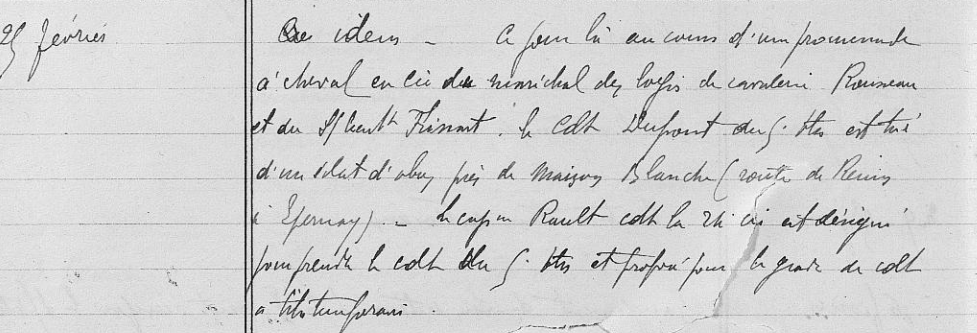 25 février
idem - Ce jour là au cours d'une promenade
à cheval en Cie du maréchal des logis de cavalerie Rousseau
et du S/Lieut le Cdt Dupont du Btn est tué
d'un éclat d'obus près de Maison Blanche (route de Reims
à Epernay). - le capne Rault cdt la Cie est désigné
pour prendre le cdt du Btn et proposé pour le grade de cdt
à titre temporaire